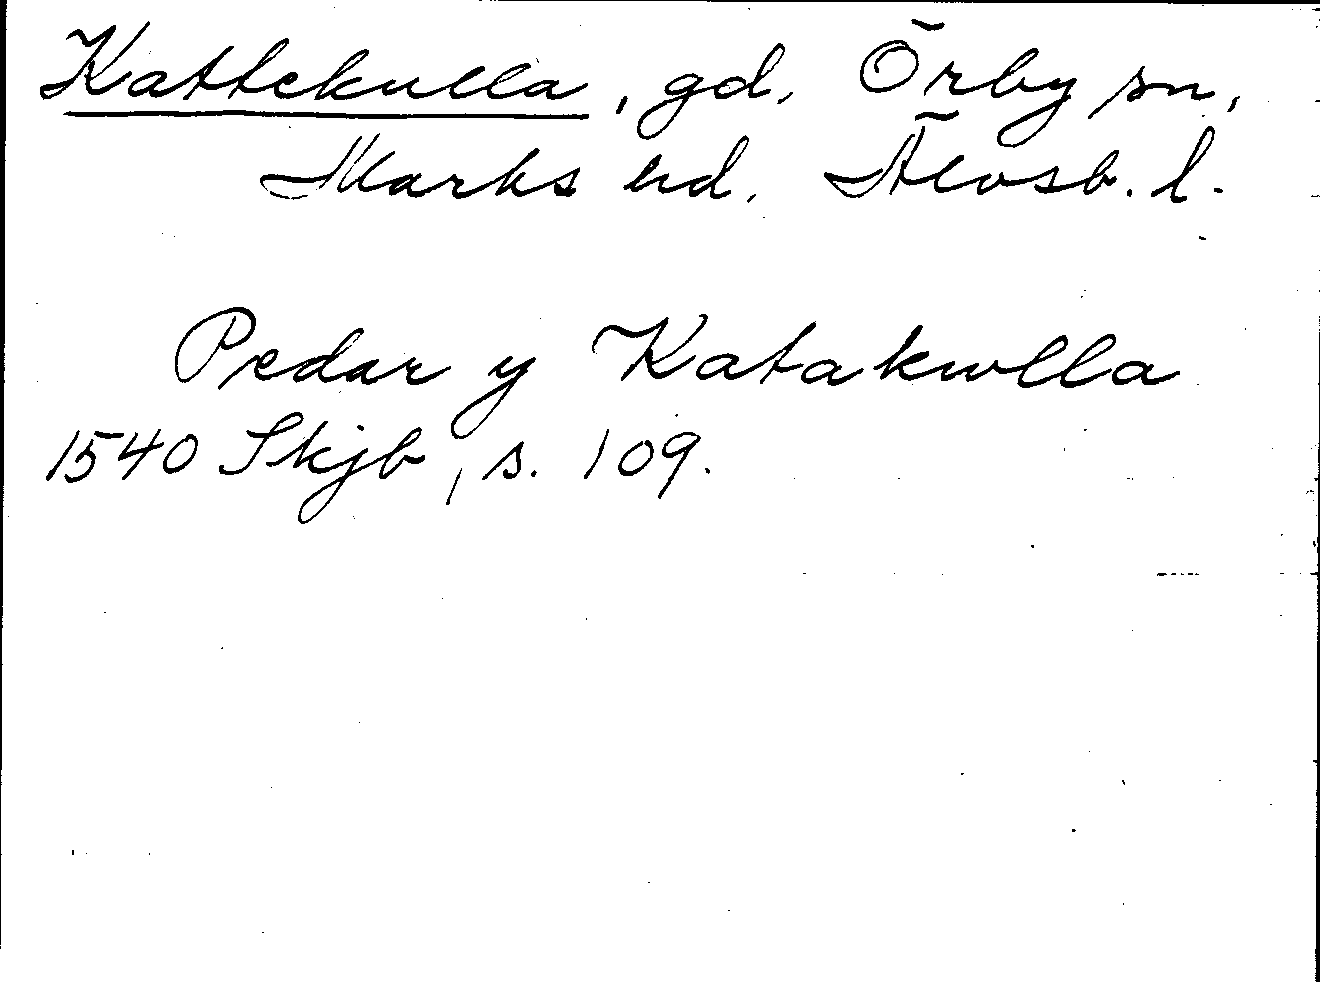 Kattekulla, gd, Örby sn,
Marks hd. Älvsb. l.
Pedar y Katakwlla
1540 Skjb, s. 109.